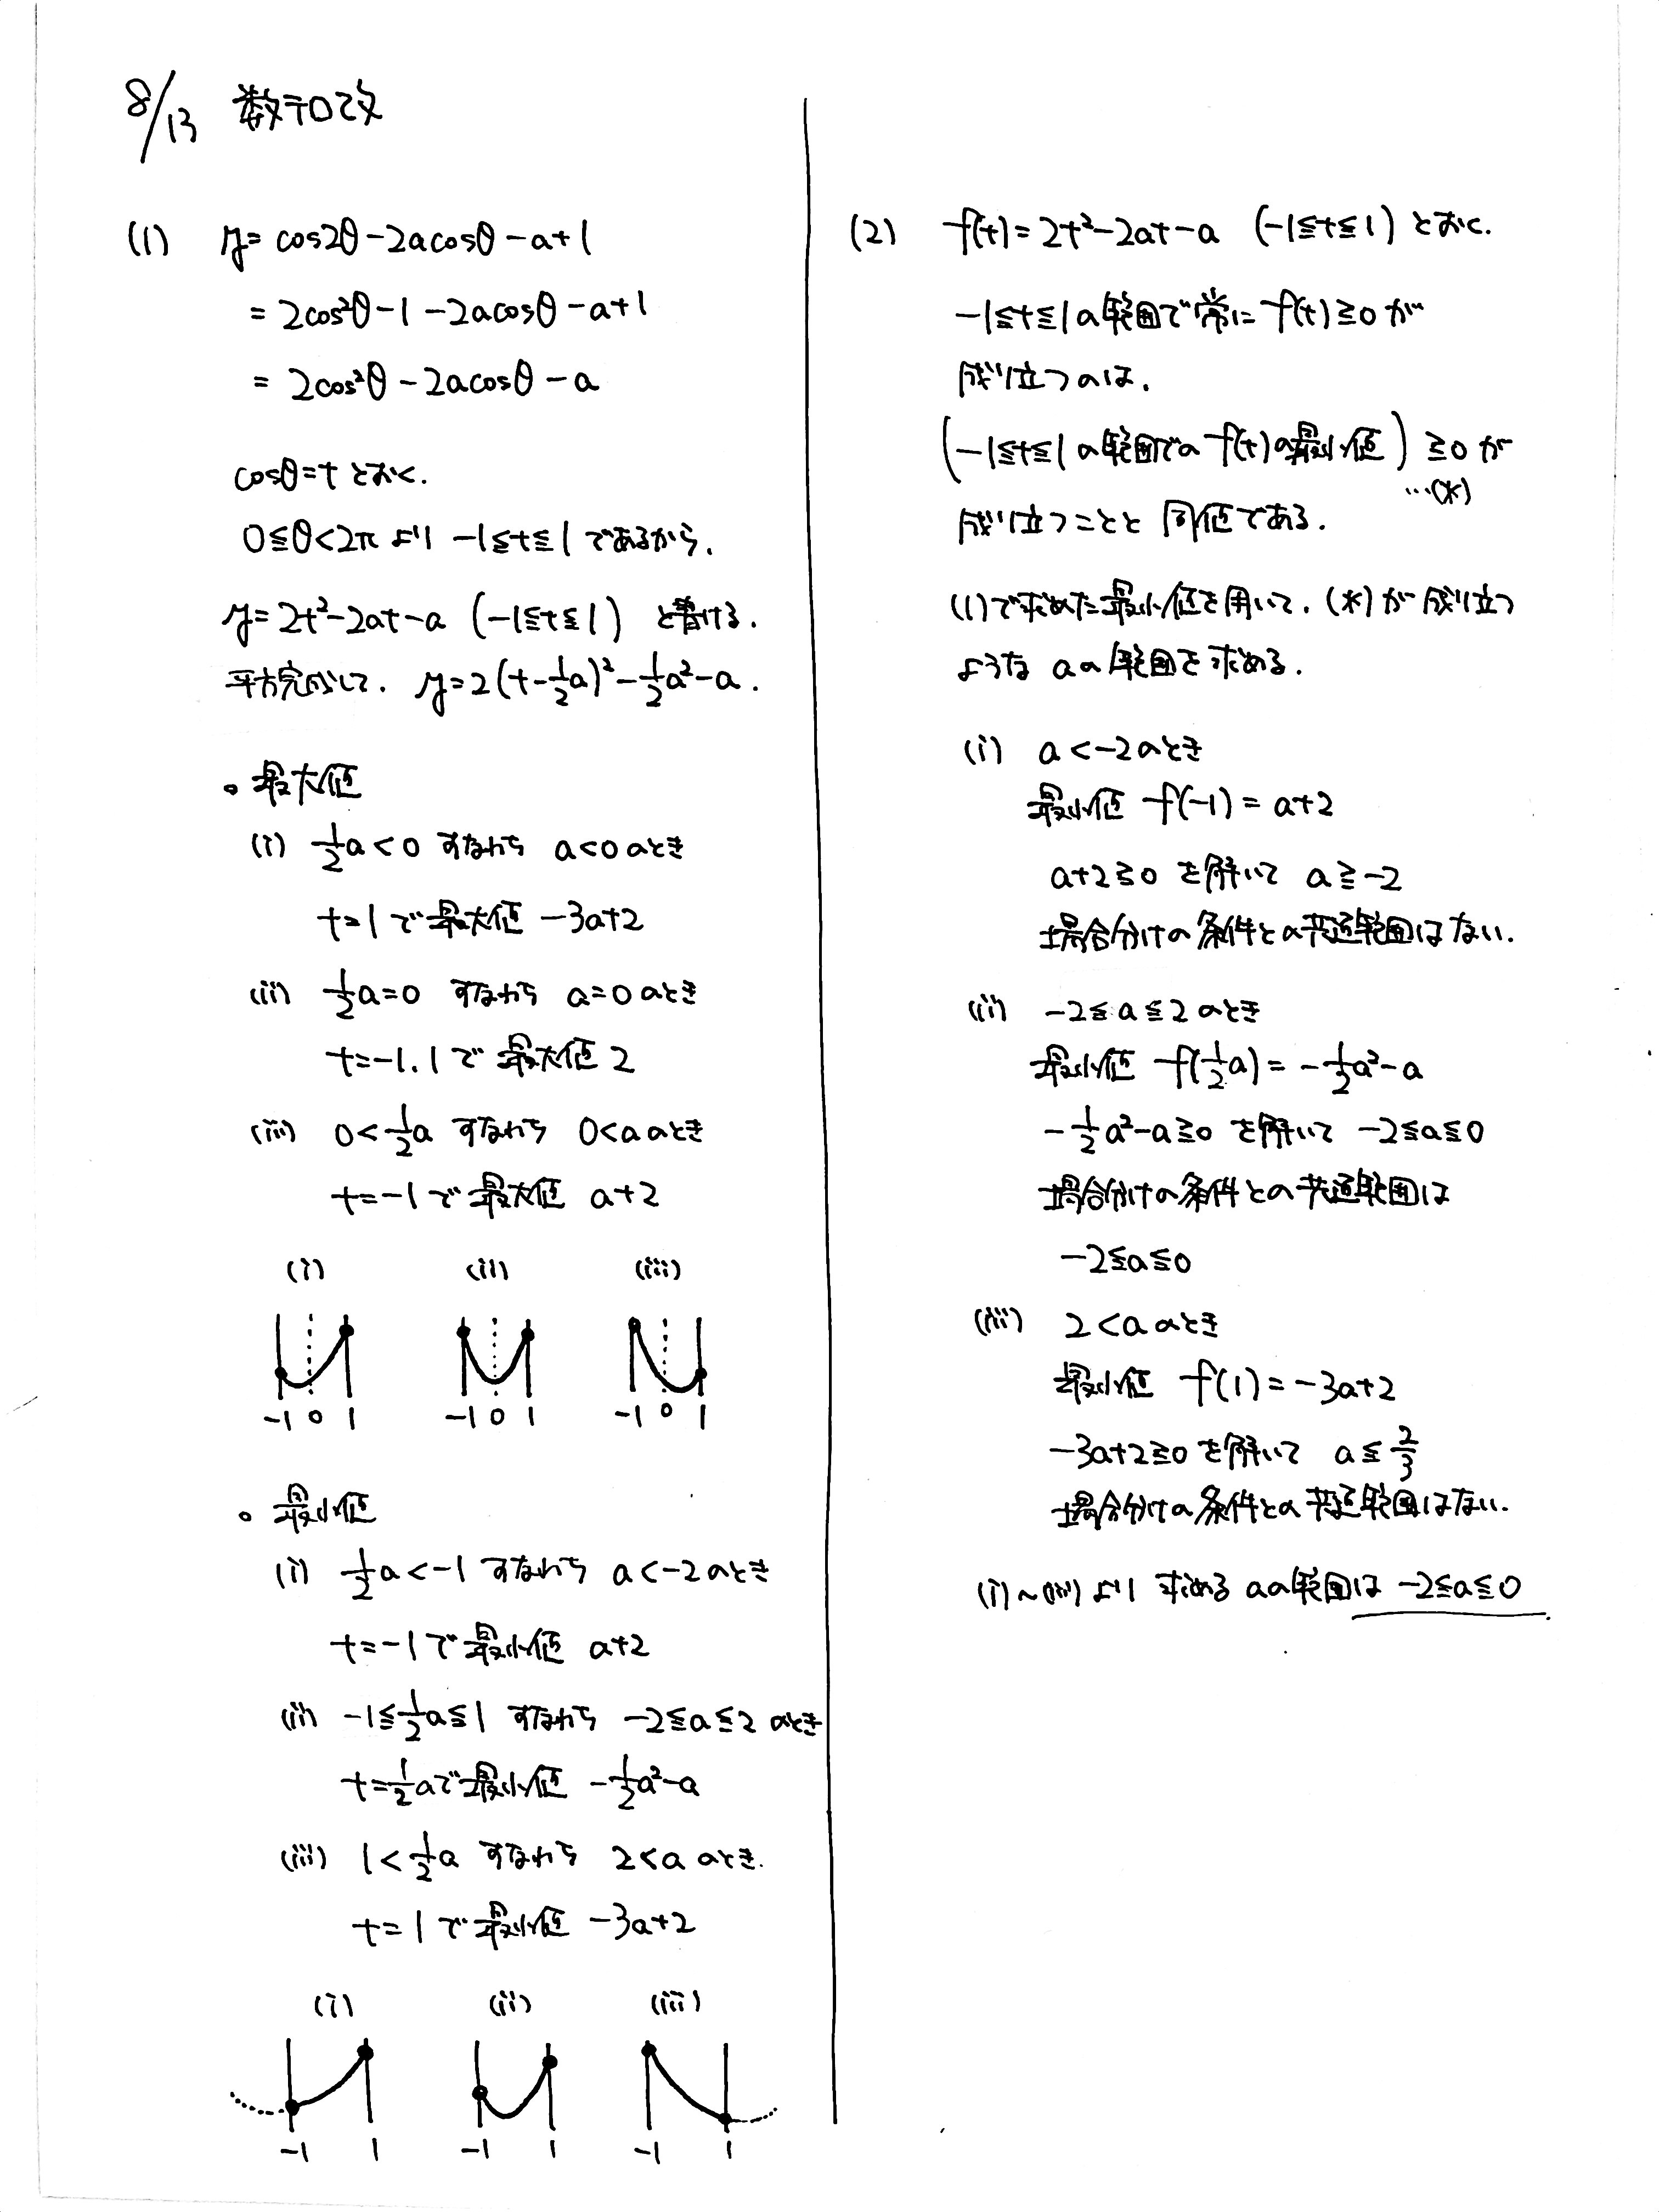 8/13 数テロ改
(1) y=cos2θ-2acosθ-a+1
=2cos²θ-1-2acosθ-a+1
=2cos²θ-2acosθ-a
cosθ=tとおく.
0≦θ<2πより -1≦t≦1であるから,
y=2t²-2at-a (-1≦t≦1) と書ける.
平方完成して, y=2(t-1/2a)²-1/2a²-a.
○最大値
(i) 1/2a<0 すなわち a<0のとき
t=1で最大値 -3a+2
(ii) 1/2a=0 すなわち a=0のとき
t=-1,1で最大値 2
(iii) 0<1/2a すなわち 0<aのとき
t=-1で最大値 a+2
(i) (ii) (iii)
-1 0 1 -1 0 1 -1 0 1
○最小値
(i) 1/2a<-1 すなわち a<-2のとき
t=-1で最小値 a+2
(ii) -1≦1/2a≦1 すなわち -2≦a≦2のとき
t=1/2aで最小値 -1/2a²-a
(iii) 1<1/2a すなわち 2<aのとき.
t=1で最小値 -3a+2
(i) (ii) (iii)
-1 1 -1 1 -1 1
(2) f(t)=2t²-2at-a (-1≦t≦1) とおく.
-1≦t≦1の範囲で常に f(t)≧0が
成り立つのは,
(-1≦t≦1の範囲でのf(t)の最小値)≧0が
…(*)
成り立つことと同値である.
(1)で求めた最小値を用いて, (*)が成り立つ
ような aの範囲を求める.
(i) a<-2のとき
最小値 f(-1)=a+2
a+2≧0 を解いて a≧-2
場合分けの条件との共通範囲はない.
(ii) -2≦a≦2のとき
最小値 f(1/2a)=-1/2a²-a
-1/2a²-a≧0 を解いて -2≦a≦0
場合分けの条件との共通範囲は
-2≦a≦0
(iii) 2<aのとき
最小値 f(1)=-3a+2
-3a+2≧0を解いて a≦2/3
場合分けの条件との共通範囲はない.
(i)~(iii)より 求めるaの範囲は -2≦a≦0